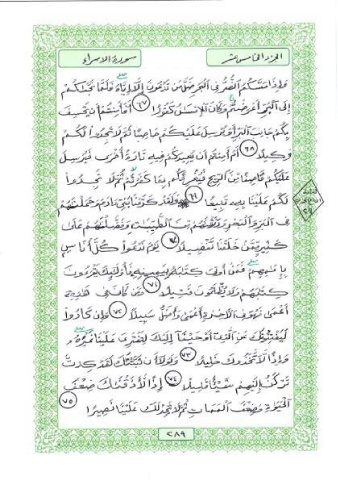 الجزء الخامس عشر
سورة الاسراء
وَإِذَا مَسَّكُمُ الضُّرُّ فِي الْبَحْرِ ضَلَّ مَن تَدْعُونَ إِلَّا إِيَّاهُ فَلَمَّا نَجَّىٰكُمْ
إِلَى الْبَرِّ أَعْرَضْتُمْ وَكَانَ الْإِنسَانُ كَفُورًا ٦٧ أَفَأَمِنتُمْ أَن يَخْسِفَ
بِكُمْ جَانِبَ الْبَرِّ أَوْ يُرْسِلَ عَلَيْكُمْ حَاصِبًا ثُمَّ لَا تَجِدُوا لَكُمْ
وَكِيلًا ٦٨ أَمْ أَمِنتُمْ أَن يُعِيدَكُمْ فِيهِ تَارَةً أُخْرَىٰ فَيُرْسِلَ
عَلَيْكُمْ قَاصِفًا مِّنَ الرِّيحِ فَيُغْرِقَكُم بِمَا كَفَرْتُمْ ثُمَّ لَا تَجِدُوا
لَكُمْ عَلَيْنَا بِهِ تَبِيعًا ٦٩ وَلَقَدْ كَرَّمْنَا بَنِي آدَمَ وَحَمَلْنَاهُمْ
فِي الْبَرِّ وَالْبَحْرِ وَرَزَقْنَاهُم مِّنَ الطَّيِّبَاتِ وَفَضَّلْنَاهُمْ عَلَىٰ
كَثِيرٍ مِّمَّنْ خَلَقْنَا تَفْضِيلًا ٧٠ يَوْمَ نَدْعُوا كُلَّ أُنَاسٍ
بِإِمَامِهِمْ فَمَنْ أُوتِيَ كِتَابَهُ بِيَمِينِهِ فَأُولَٰئِكَ يَقْرَءُونَ
كِتَابَهُمْ وَلَا يُظْلَمُونَ فَتِيلًا ٧١ وَمَن كَانَ فِي هَٰذِهِ
أَعْمَىٰ فَهُوَ فِي الْآخِرَةِ أَعْمَىٰ وَأَضَلُّ سَبِيلًا ٧٢ وَإِن كَادُوا
لَيَفْتِنُونَكَ عَنِ الَّذِي أَوْحَيْنَا إِلَيْكَ لِتَفْتَرِيَ عَلَيْنَا غَيْرَهُ
وَإِذًا لَّاتَّخَذُوكَ خَلِيلًا ٧٣ وَلَوْلَا أَن ثَبَّتْنَاكَ لَقَدْ كِدتَّ
تَرْكَنُ إِلَيْهِمْ شَيْئًا قَلِيلًا ٧٤ إِذًا لَّأَذَقْنَاكَ ضِعْفَ
الْحَيَوٰةِ وَضِعْفَ الْمَمَاتِ ثُمَّ لَا تَجِدُ لَكَ عَلَيْنَا نَصِيرًا ٧٥
٢٨٩